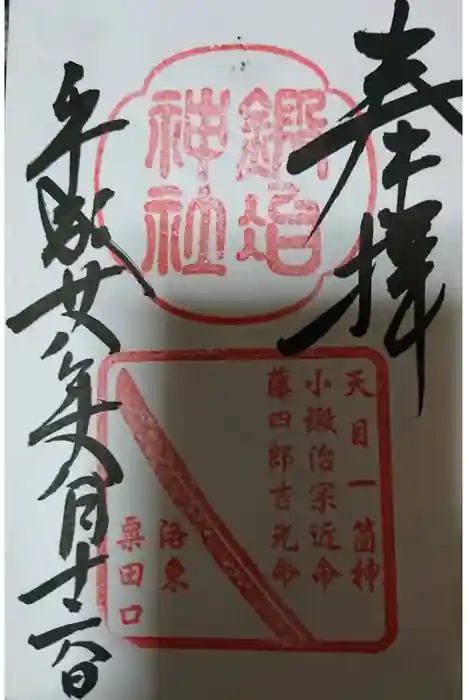 奉拝
鍛冶
神社
天目一箇神
小鍛治宗近命
藤四郎吉光命
洛東
粟田口
平成廿八年八月十二日